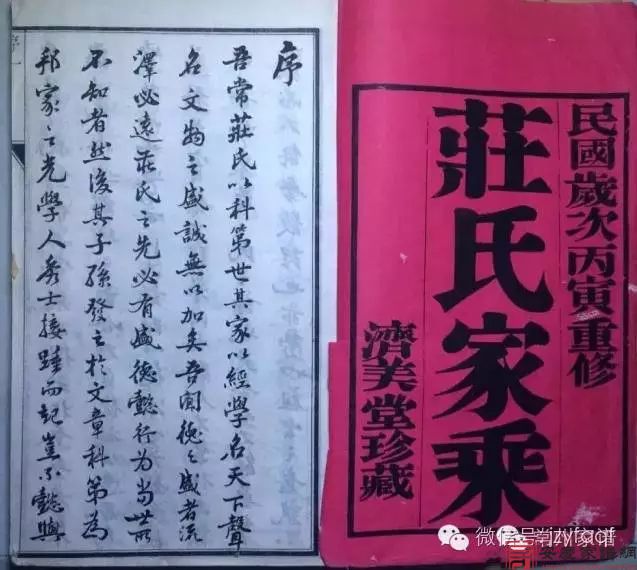 民國歲次丙寅重修
莊氏家乘
濟美堂珍藏
序
吾常莊氏以科第世其家以經學名天下聲
名文物之盛誠無以加矣吾聞德之盛者流
澤必遠莊氏之先必有盛德懿行為當世所
不知者然後其子孫發之於文章科第為
邦家之光學人秀士接踵而起豈不懿與
序一
微信号: jzyfqqf